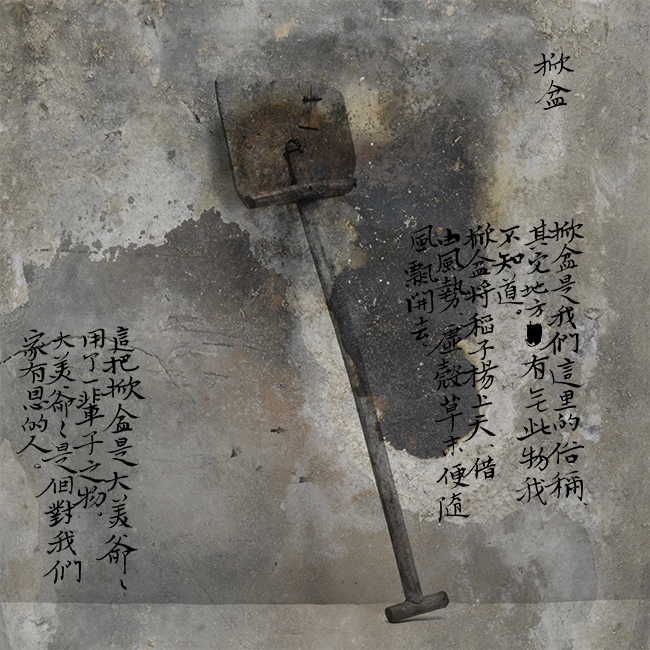 掀盆
掀盆是我們這里的俗稱、
其它地方有无此物我
不知道。
掀盆將稻子揚上天、借
由風勢、虛殼草末便随
風飄開去。
這把掀盆是大美爺々
用了一輩子之物。
大美爺々是個對我們
家有恩的人。